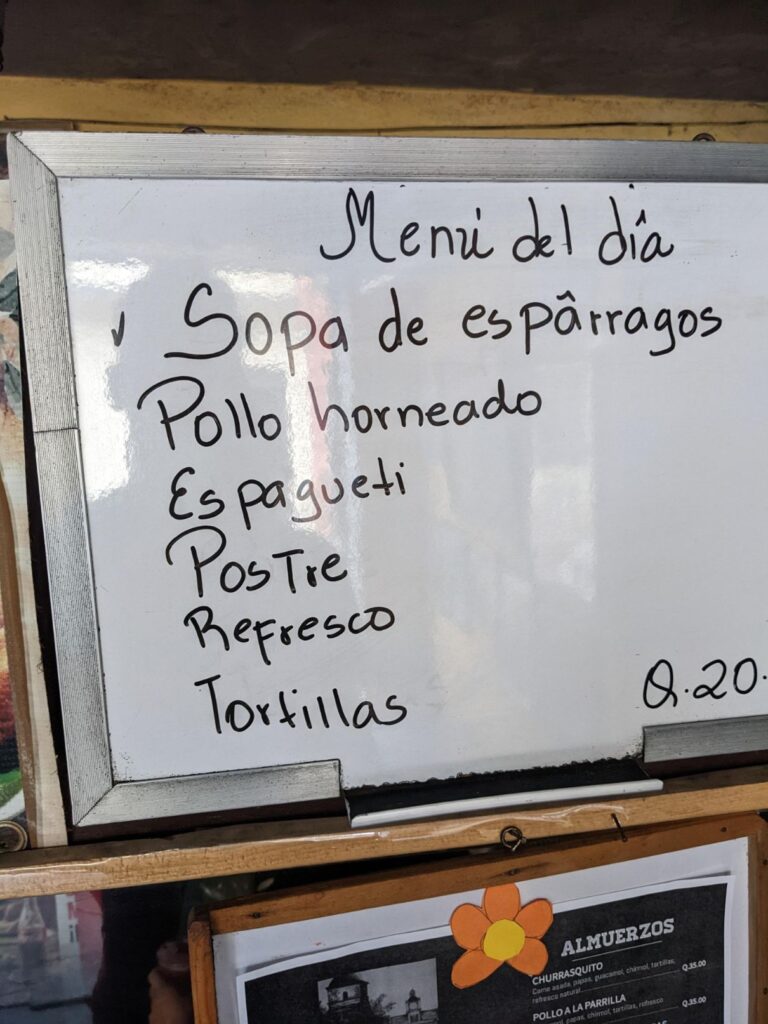 Menú del día
✓ Sopa de espârragos
Pollo horneado
Espagueti
Postre
Refresco
Tortillas
Q.20.
ALMUERZOS
CHURRASQUITO
Carne asada, papas, guacamol, chirmol, tortillas,
refresco natural
Q.35.00
POLLO A LA PARRILLA
papas, chirmol, tortillas, refresco
Q.35.00